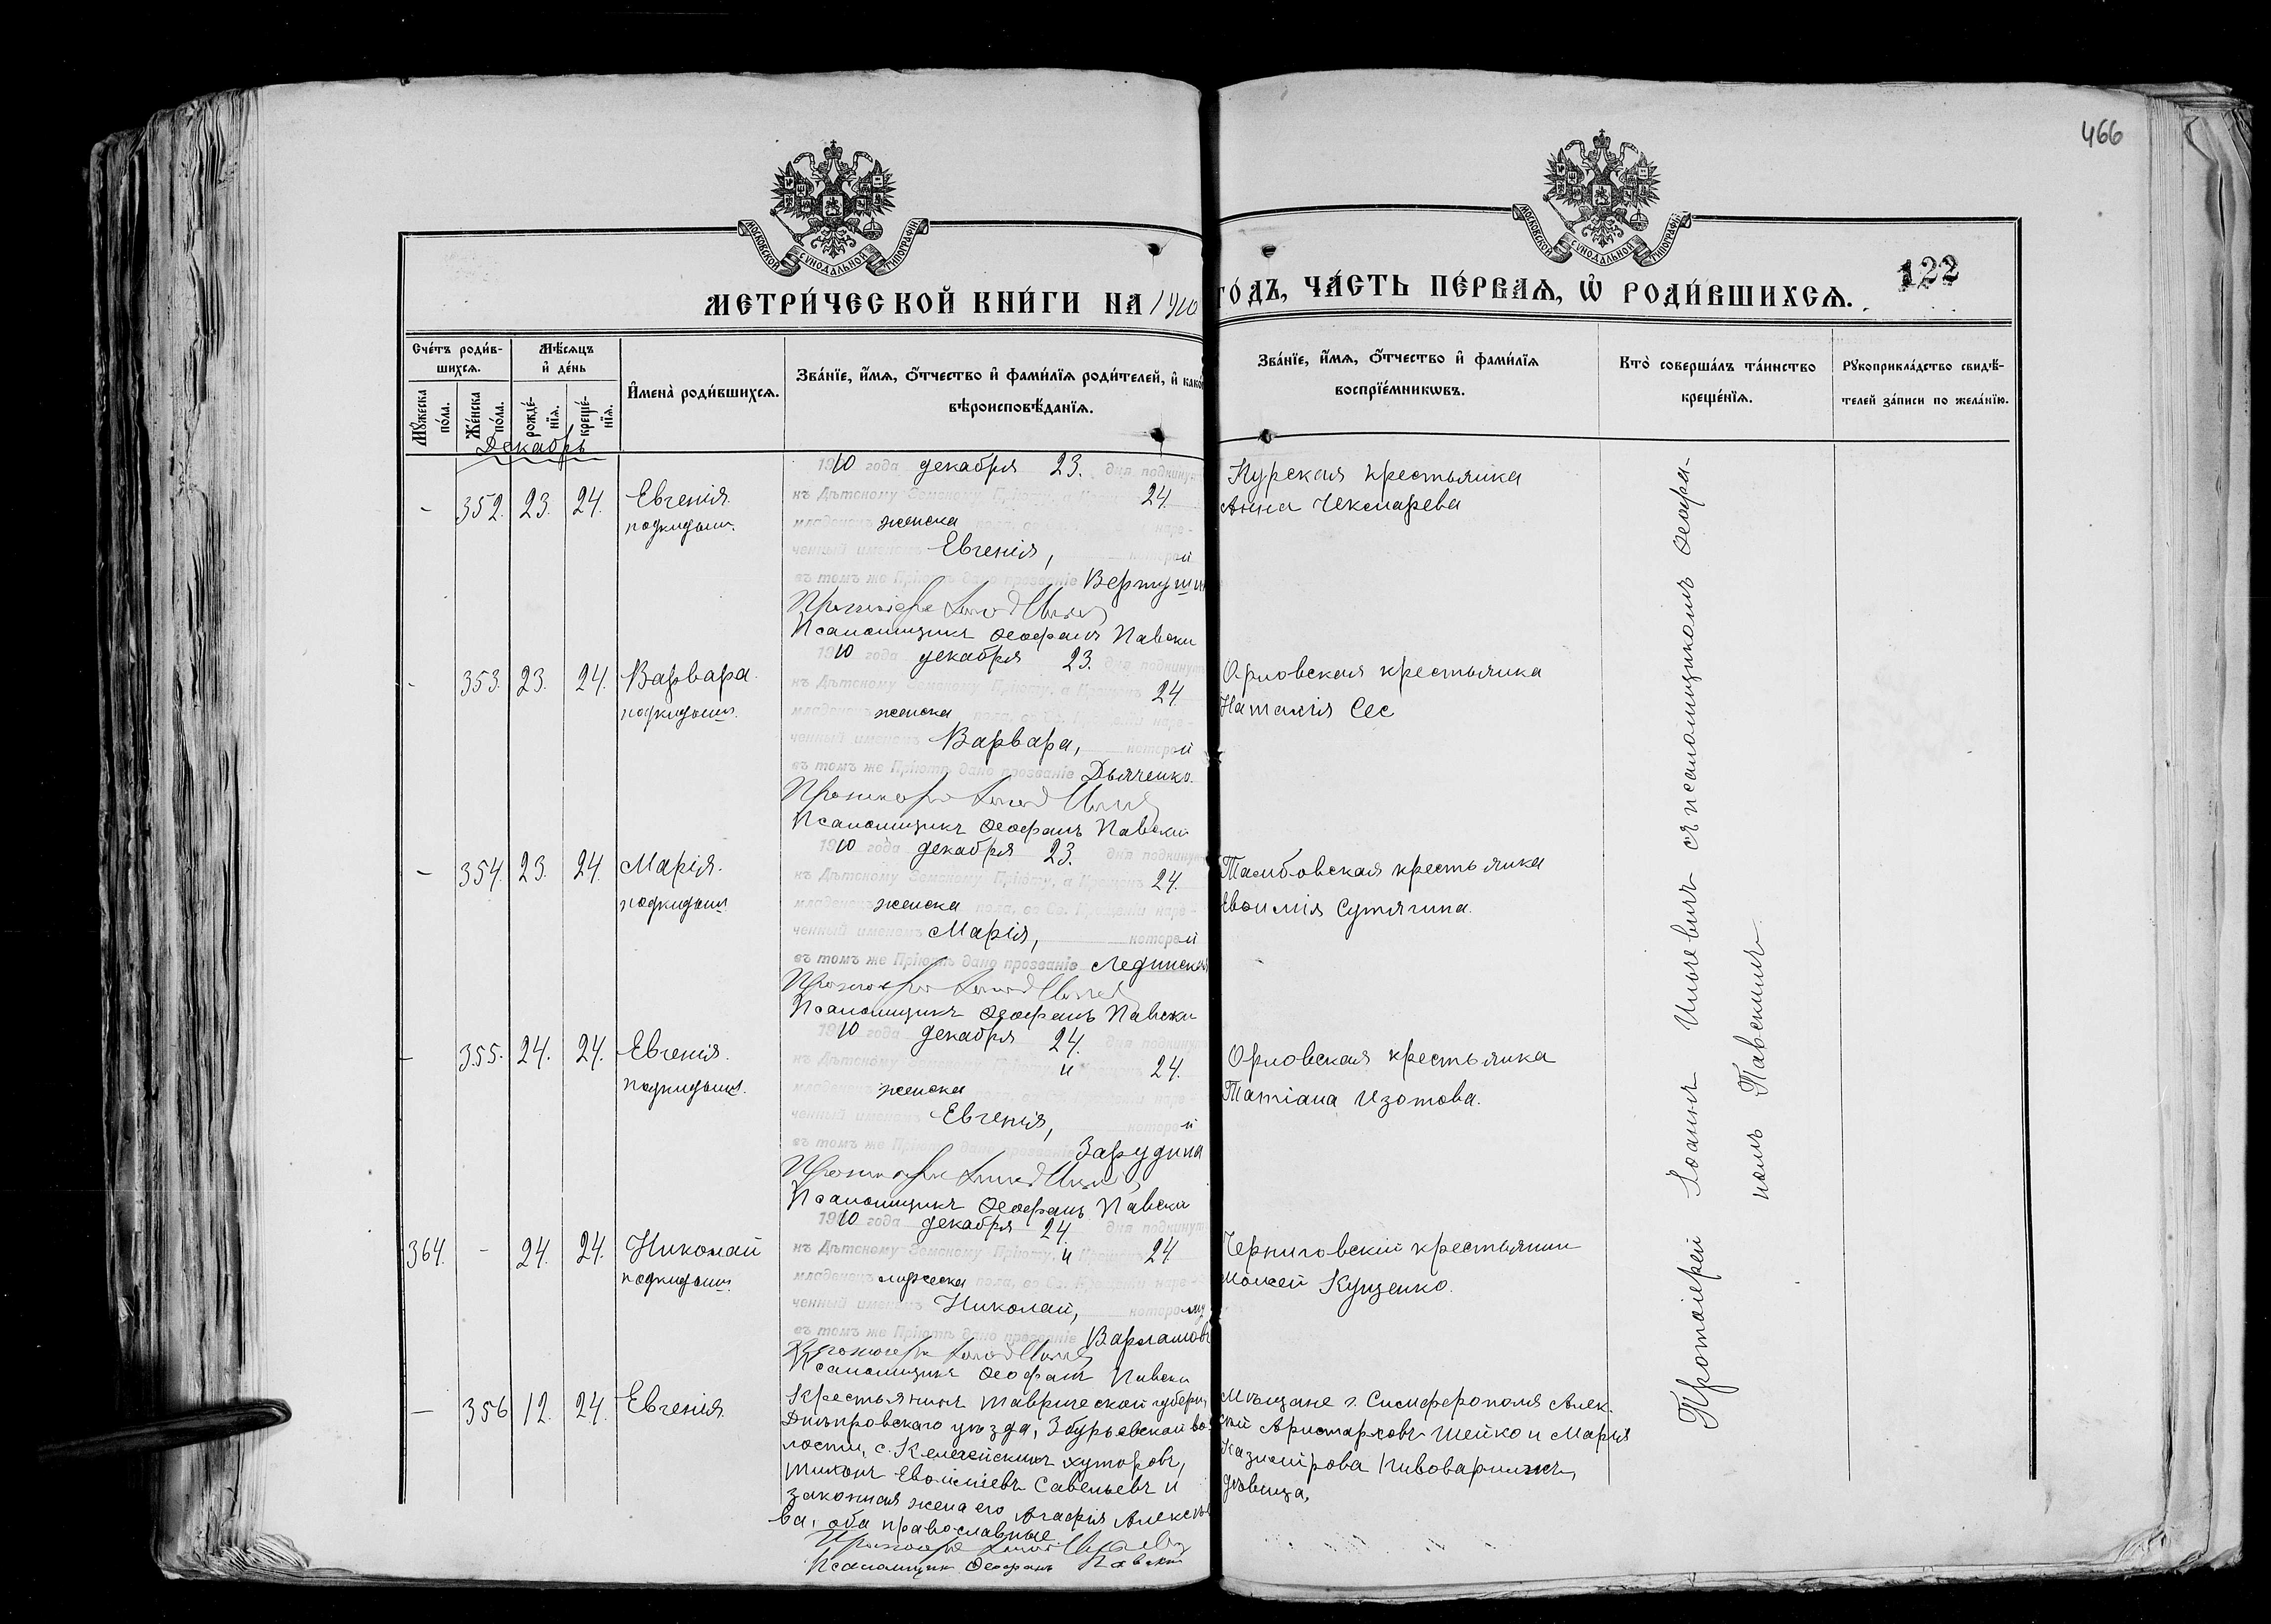 466
МОСКОВСКОЙ СѴНОДАЛЬНОЙ ТИПОГРАФІИ
МОСКОВСКОЙ СѴНОДАЛЬНОЙ ТИПОГРАФІИ
122
МЕТРИ́ЧЕСКОЙ КНИ́ГИ НА 1910
ГО́ДЪ, ЧА́СТЬ ПЕ́РВАѦ, Ѽ РОДИ́ВШИХСѦ.
Сче́тъ роди́в-
шихсѧ.
Мѣ́сѧцъ
и҆ де́нь
И҆мена̀ роди́вшихсѧ.
Зва́нїе, и҆́мѧ, ѻ҆́тчество и҆ фами́лїѧ роди́телей, и҆ како
вѣроисповѣ́данїѧ.
Зва́нїе, и҆́мѧ, ѻ҆́тчество и҆ фами́лїѧ
воспрїе́мникωвъ.
Кто̀ соверша́лъ та́инство
креще́нїѧ.
Рꙋкоприкла́дство свидѣ́-
телей за́писи по жела́нїю.
Мꙋ́жеска
по́ла.
Же́нска
по́ла.
рожде́-
нїѧ.
креще́-
нїѧ.
Декабрь
- 352. 23. 24. Евгенія
подкидыш.
1910 года декабря 23. дня подкинут
къ Дѣтскому Земскому Пріюту, а Крещенъ 24.
младенецъ женска пола, наре-
ченный именемъ Евгенія, которой
въ томъ же Пріютѣ дано прозваніе Вертуш
Протоіерей Іоаннъ
Псаломщикъ Ѳеофанъ Павски
Курская крестьянка
Анна Чекмарева
- 353. 23. 24. Варвара.
подкидыш.
1910 года декабря 23. дня подкинут
къ Дѣтскому Земскому Пріюту, а Крещенъ 24
младенецъ женска наре-
ченный именемъ Варвара, которой
въ томъ же Пріютѣ дано прозваніе Дьяченко.
Протоіерей Іоаннъ
Псаломщикъ Ѳеофанъ Павский
Орловская крестьянка
Наталія Сес
- 354. 23. 24. Марія.
подкидыш
1910 года декабря 23. дня подкинут
къ Дѣтскому Земскому Пріюту, а Крещенъ 24.
младенецъ женска пола, во Св. Крещеніи наре-
ченный именемъ Марія, которой
въ томъ же Пріютѣ дано прозваніе Лединская
Протоіерей Іоаннъ
Псаломщикъ Ѳеофанъ Павски
Тамбовская крестьянка
Евѳимія Сутягина.
- 355. 24. 24. Евгенія.
подкидыш.
1910 года декабря 24. дня подкинут
къ Дѣтскому Земскому Пріюту, и 24.
младенецъ женска наре-
ченный именемъ Евгенія, которой
въ томъ же Пріютѣ дано прозваніе Зарудина
Протоіерей Іоаннъ
Псаломщикъ Ѳеофанъ Павски
Орловская крестьянка
Татіана Изотова.
364. - 24. 24. Николай
подкидыш.
1910 года декабря 24. дня подкинут
къ Дѣтскому Земскому Пріюту, и Крещенъ 24
младенецъ мужеска пола, во Св. Крещеніи наре-
ченный именемъ Николай, которому
въ томъ же Пріютѣ дано прозваніе Варламовъ
Протоіерей Іоаннъ
Псаломщикъ Ѳеофанъ Павски
Черниговскій крестьянин
Моисей Кущенко.
- 356 12. 24. Евгенія
Крестьянинъ Таврической губерн
Днѣпровскаго уѣзда, Збурьевской во-
лости, с. Келегейскихъ хуторовъ,
Тихонъ Евѳиміевъ Савельевъ и
законная жена его Агафія Алексѣе
ва, оба православные
Протоіерей Іоаннъ
Псаломщик Ѳеофанъ Павски
Мѣщане г. Симферополя Алек-
сѣй Аристарховъ Шейко и Марія
Казимирова Пивоварчикъ,
дѣвица,
Протоіерей Іоаннъ Ильчевичъ съ псаломщикомъ Ѳеофа-
номъ Павскимъ